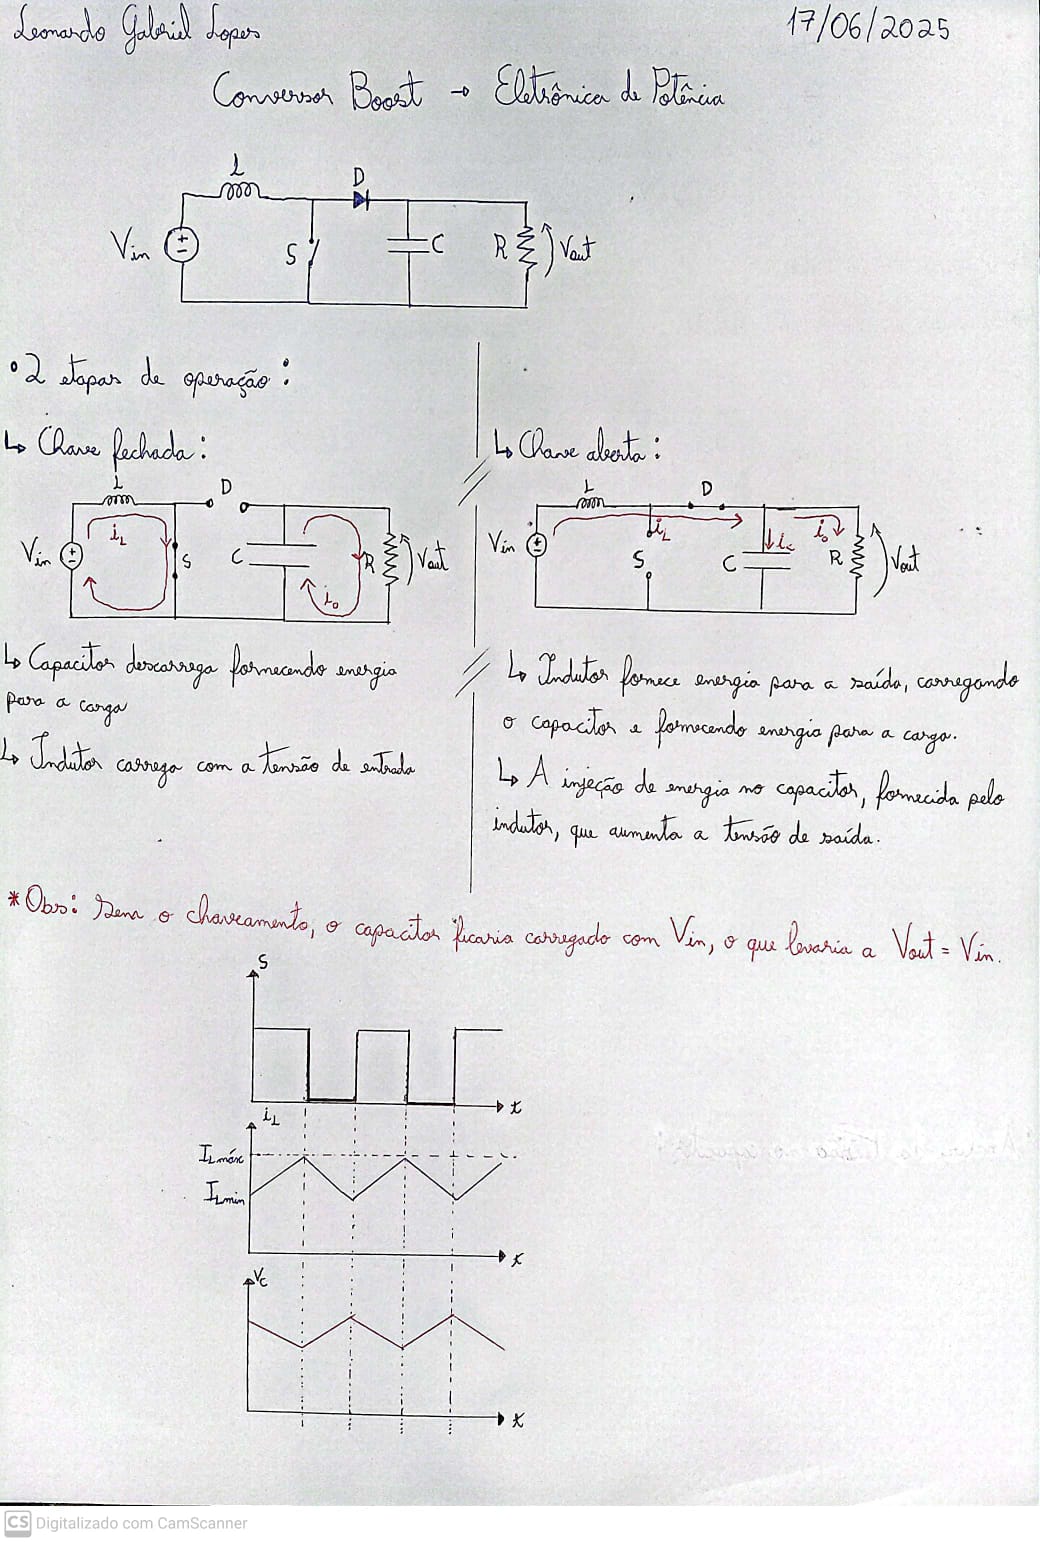 Leonardo Gabriel Lopes 17/06/2025
Conversor Boost → Eletrônica de Potência
L
D
Vin
S
C
R
Vout
• 2 etapas de operação:
↳ Chave fechada:
L
D
iL
Vin
S
C
R
Vout
io
↳ Chave aberta:
L
D
Vin
iL
S
C
ic
io
R
Vout
↳ Capacitor descarrega fornecendo energia
para a carga
↳ Indutor carrega com a tensão de entrada
↳ Indutor fornece energia para a saída, carregando
o capacitor e fornecendo energia para a carga.
↳ A injeção de energia no capacitor, fornecida pelo
indutor, que aumenta a tensão de saída.
* Obs: Sem o chaveamento, o capacitor ficaria carregado com Vin, o que levaria a Vout = Vin.
S
t
iL
ILmáx
ILmin
t
Vc
t
CS Digitalizado com CamScanner